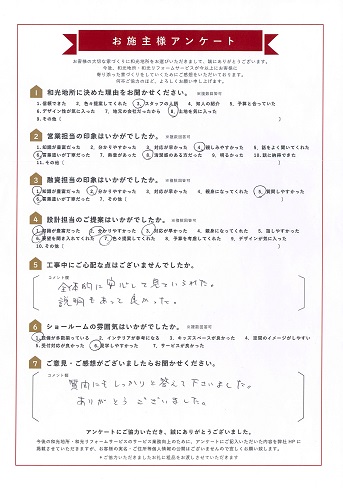 お施主様アンケート
お客様の大切な家づくりに和光地所をお選びいただきまして、誠にありがとうございます。
今後、和光地所・和光リフォームサービスが今以上にお客様に
寄り添った家づくりをしていくためにご感想をいただいております。
何卒ご協力のほど、よろしくお願い申し上げます。
1 和光地所に決めた理由をお聞かせください。※複数回答可
1.信頼できた 2.色々提案してくれた 3.スタッフの人柄 4.知人の紹介 5.予算と合っていた
6.デザイン性が気に入った 7.地元の会社だったから 8.土地を気に入った
9.その他( )
2 営業担当の印象はいかがでしたか。※複数回答可
1.知識が豊富だった 2.分かりやすかった 3.対応が早かった 4.親しみやすかった 5.話をよく聞いてくれた
6.言葉遣いが丁寧だった 7.熱意があった 8.清潔感のある方だった 9.明るかった 10.話に納得できた
11.その他( )
3 融資担当の印象はいかがでしたか。※複数回答可
1.知識が豊富だった 2.分かりやすかった 3.対応が早かった 4.親身になってくれた 5.質問しやすかった
6.言葉遣いが丁寧だった 7.その他( )
4 設計担当のご提案はいかがでしたか。※複数回答可
1.知識が豊富だった 2.分かりやすかった 3.対応が早かった 4.親身になってくれた 5.話しやすかった
6.要望を聞き入れてくれた 7.色々提案してくれた 8.予算を考慮してくれた 9.デザインが気に入った
10.その他( )
5 工事中にご心配な点はございませんでしたか。
コメント欄
全体的に安心して見ていられた。
説明もあって良かった。
6 ショールームの雰囲気はいかがでしたか。※複数回答可
1.設備が多数揃っている 2.インテリアが参考になる 3.キッズスペースが良かった 4.空間のイメージがしやすい
5.受付対応が良かった 6.見学しやすかった 7.サービスが良かった
7 ご意見・ご感想がございましたらお聞かせください。
コメント欄
質問にもしっかりと答えて下さいました。
ありがとうございました。
アンケートにご協力いただき、誠にありがとうございました。
今後の和光地所・和光リフォームサービスのサービス業務向上のために、アンケートにご記入いただいた内容を弊社HPに
掲載させていただきますが、お客様の実名・ご住所等個人情報の公開はございませんので宜しくお願い致します。
＊ご協力いただきましたお礼に粗品をお渡しさせていただきます